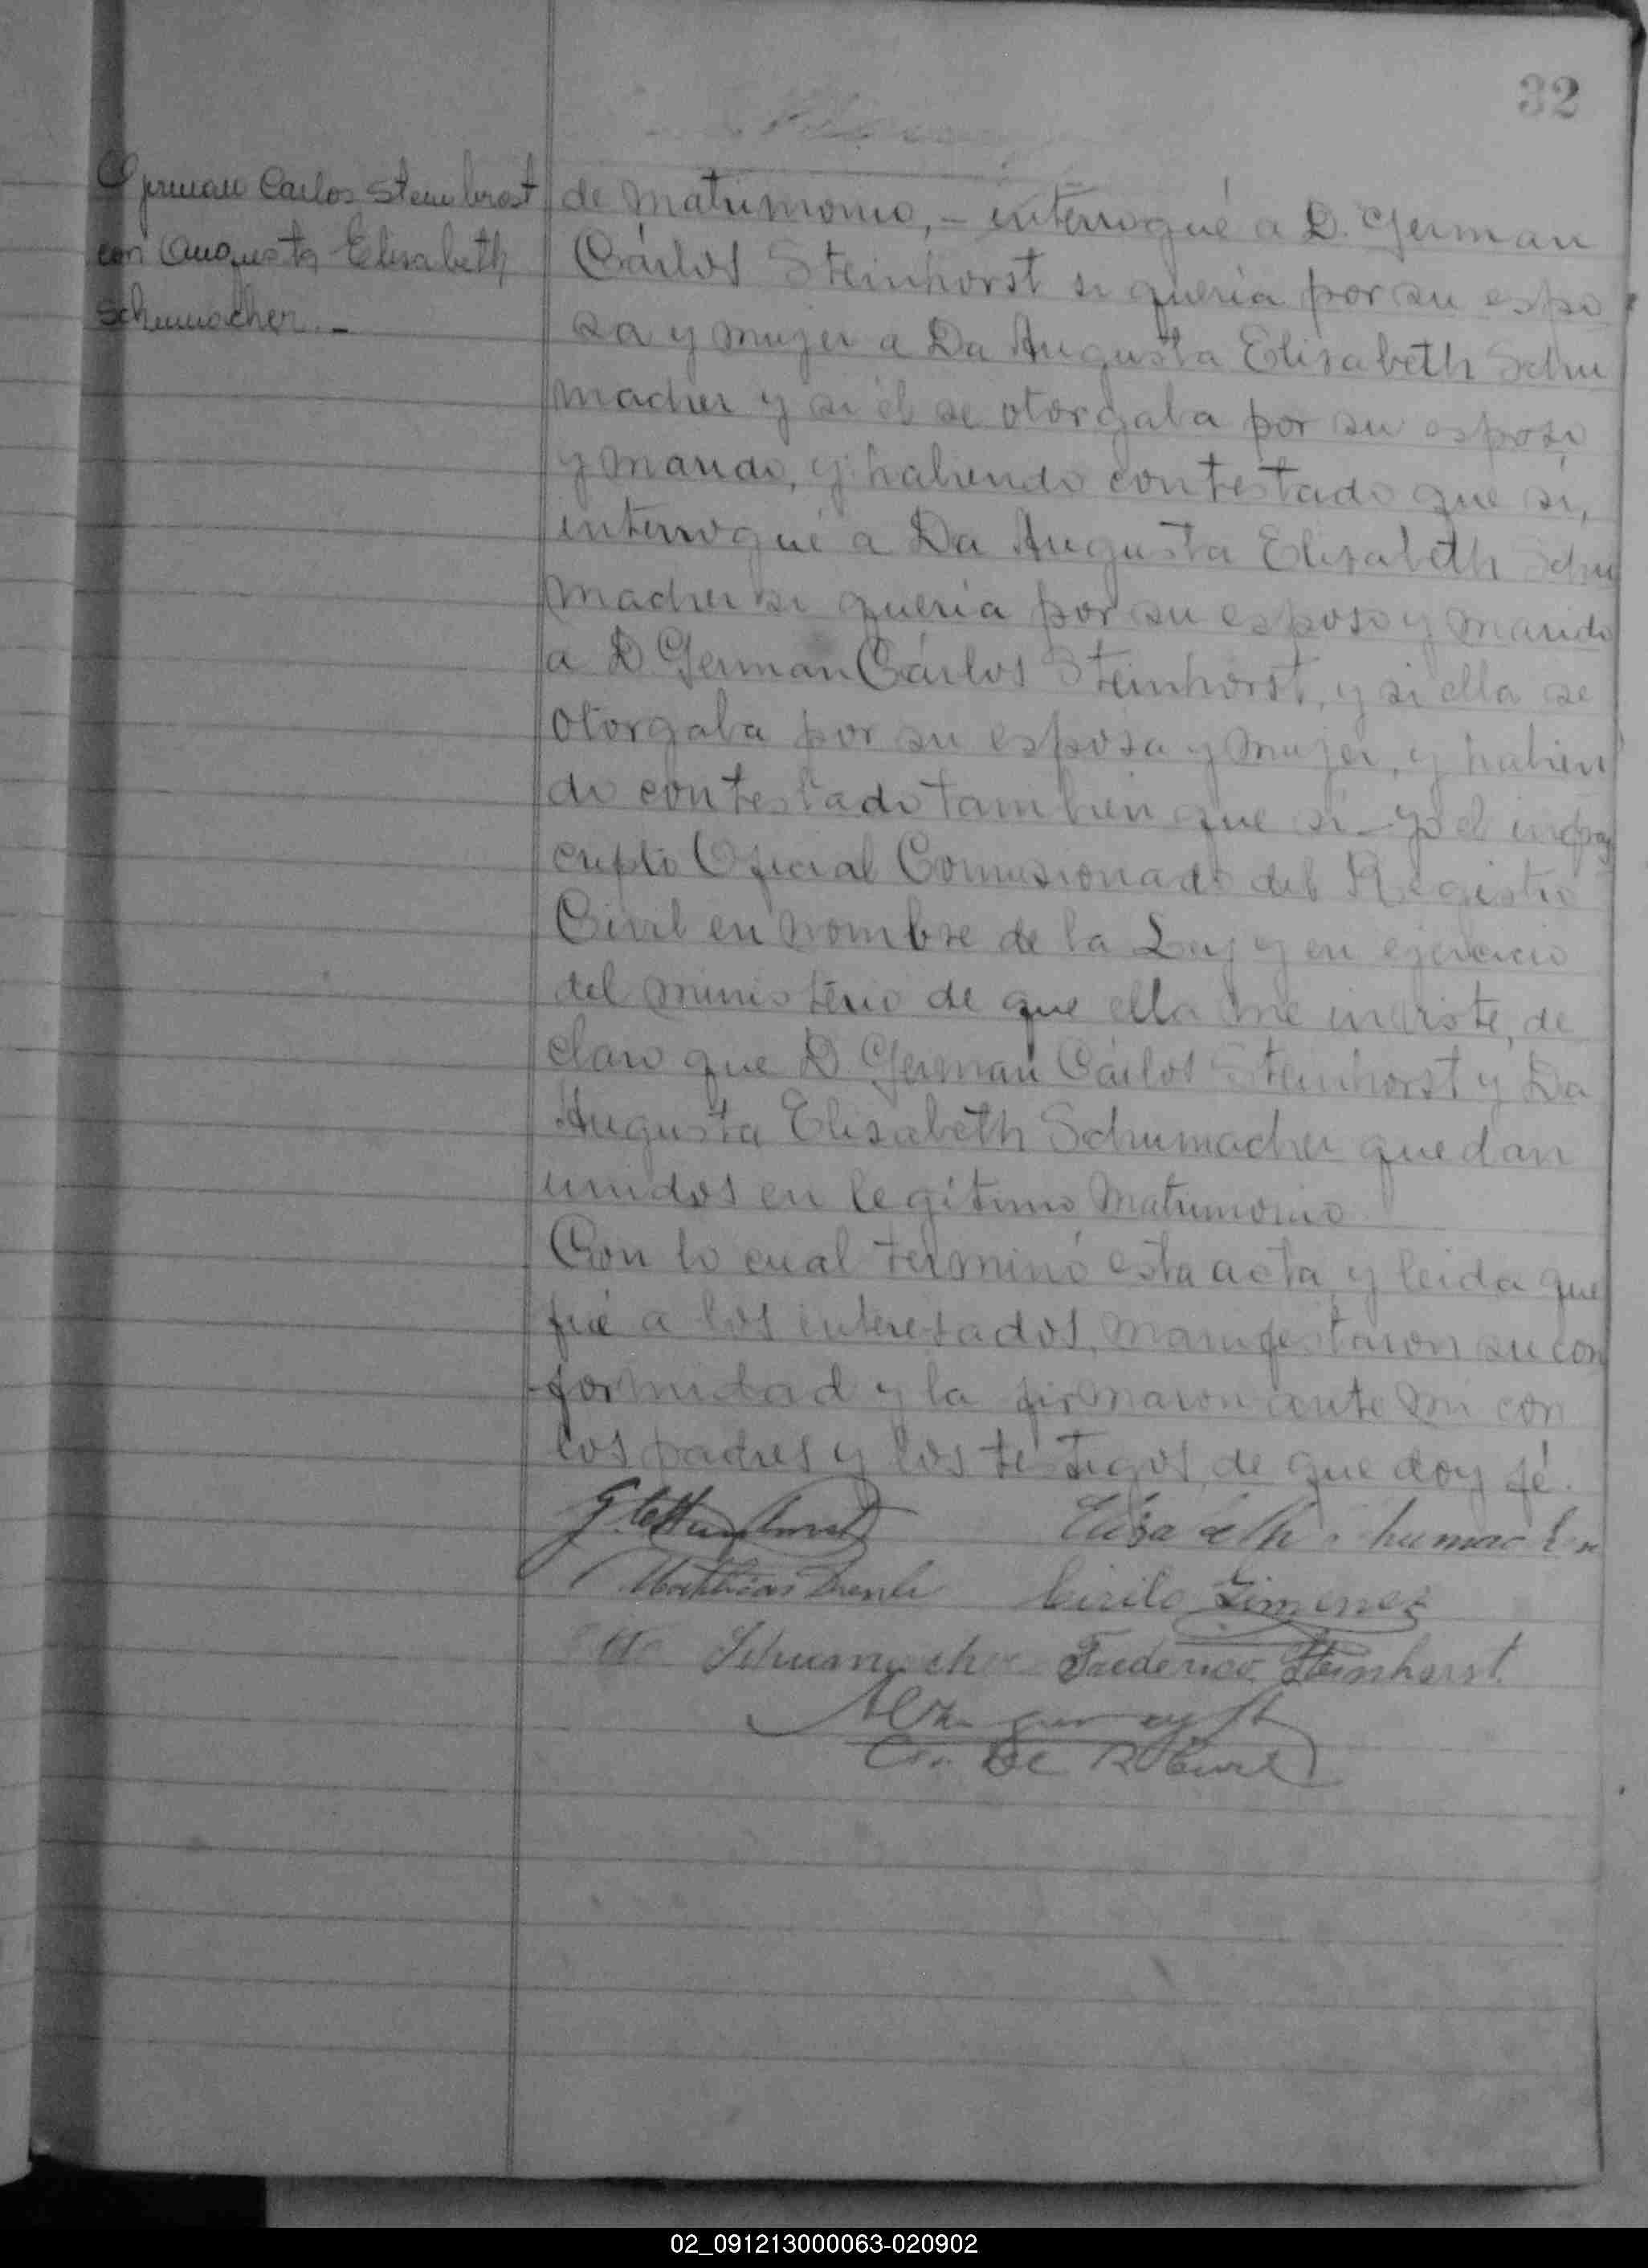 32
German Carlos Steinhorst
con Augusta Elisabeth
Schumacher. -
de matrimonio, - interrogué a D. German
Cárlos Steinhorst si queria por su espo
sa y mujer a Da Augusta Elisabeth Schu
macher y si él se otorgaba por su esposo
y marido, y habiendo contestado que si,
interrogué a Da Augusta Elisabeth Schu
macher si queria por su esposo y marido
a D. German Cárlos Steinhorst, y si ella se
otorgaba por su esposa y mujer, y habien
do contestado tambien que si - yo el infras
cripto Oficial Comisionado del Registro
Civil en nombre de la Ley y en ejercicio
del ministerio de que ella me inviste, de
claro que D German Cárlos Steinhorst y Da
Augusta Elisabeth Schumacher quedan
unidos en legítimo matrimonio
Con lo cual terminó esta acta, y leida que
fué a los interesados, manifestaron su con
formidad y la firmaron ante mi con
los padres y los testigos, de que doy fé.
Elisabeth Schumacher
Mathias Cirilo Gimenez
Schumacher Frederico Steinhorst
02_091213000063-020902